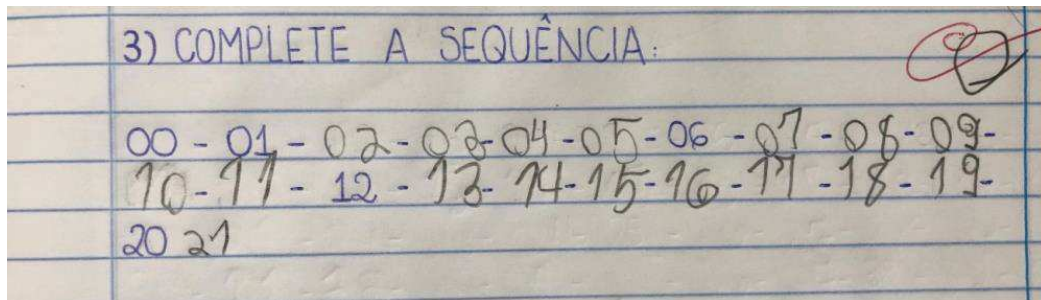 3) COMPLETE A SEQUÊNCIA:
00 - 01 - 02 - 03 - 04 - 05 - 06 - 07 - 08 - 09 -
10 - 11 - 12 - 13 - 14 - 15 - 16 - 17 - 18 - 19 -
20 21